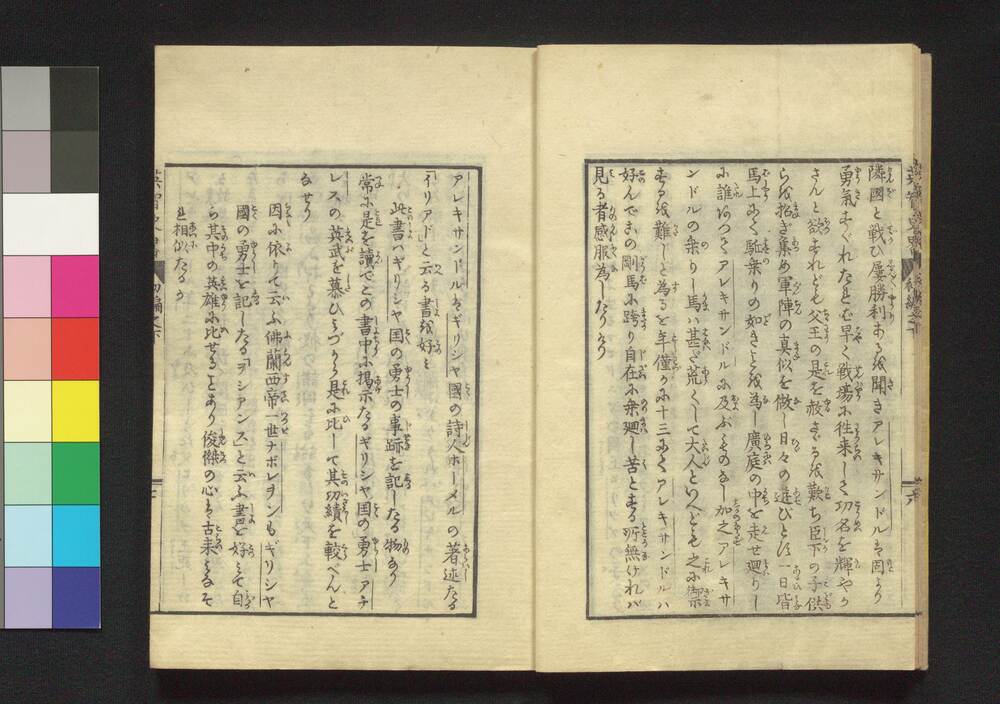 隣國と戦ひ屡勝利あるを聞きアレキサンドルは固より
勇氣すぐれたれども早く戦場に往来して功名を輝やか
さんと欲すれども父王の是を赦さゞるを歎ち臣下の子供
らを招ぎ集め軍陣の真似を做し日々の遊びとす一日皆
馬上にて駈乗りの如きことを為し廣庭の中を走せ廻りし
に誰あつてアレキサンドルに及ぶものなし加之アレキサ
ンドルの乗りし馬は甚だ荒くして大人といへども之に御
するを難しと為るを年僅かに十三にてアレキサンドルハ
好んでその剛馬に跨り自在に乗廻し苦とする所無ければ
見る者感服為したりけり
アレキサンドルはギリシヤ國の詩人ホーメルの著述たる
「イリアド」と云る書を好と
此書ハギリシヤ国の勇士の事跡を記したる物なり
常に是を讀でこの書中に掲示たるギリシヤ国の勇士アチ
レスの英武を慕ひみづから是に比して其功績を較べんと
なせり
因に依りて云ふ佛蘭西帝一世ナポレヲンもギリシヤ
國の勇士を記したる「ヲシアンス」と云ふ書を好みて自
ら其中の英雄に比せることあり俊傑の心は古来みなそ
れ相似たるか